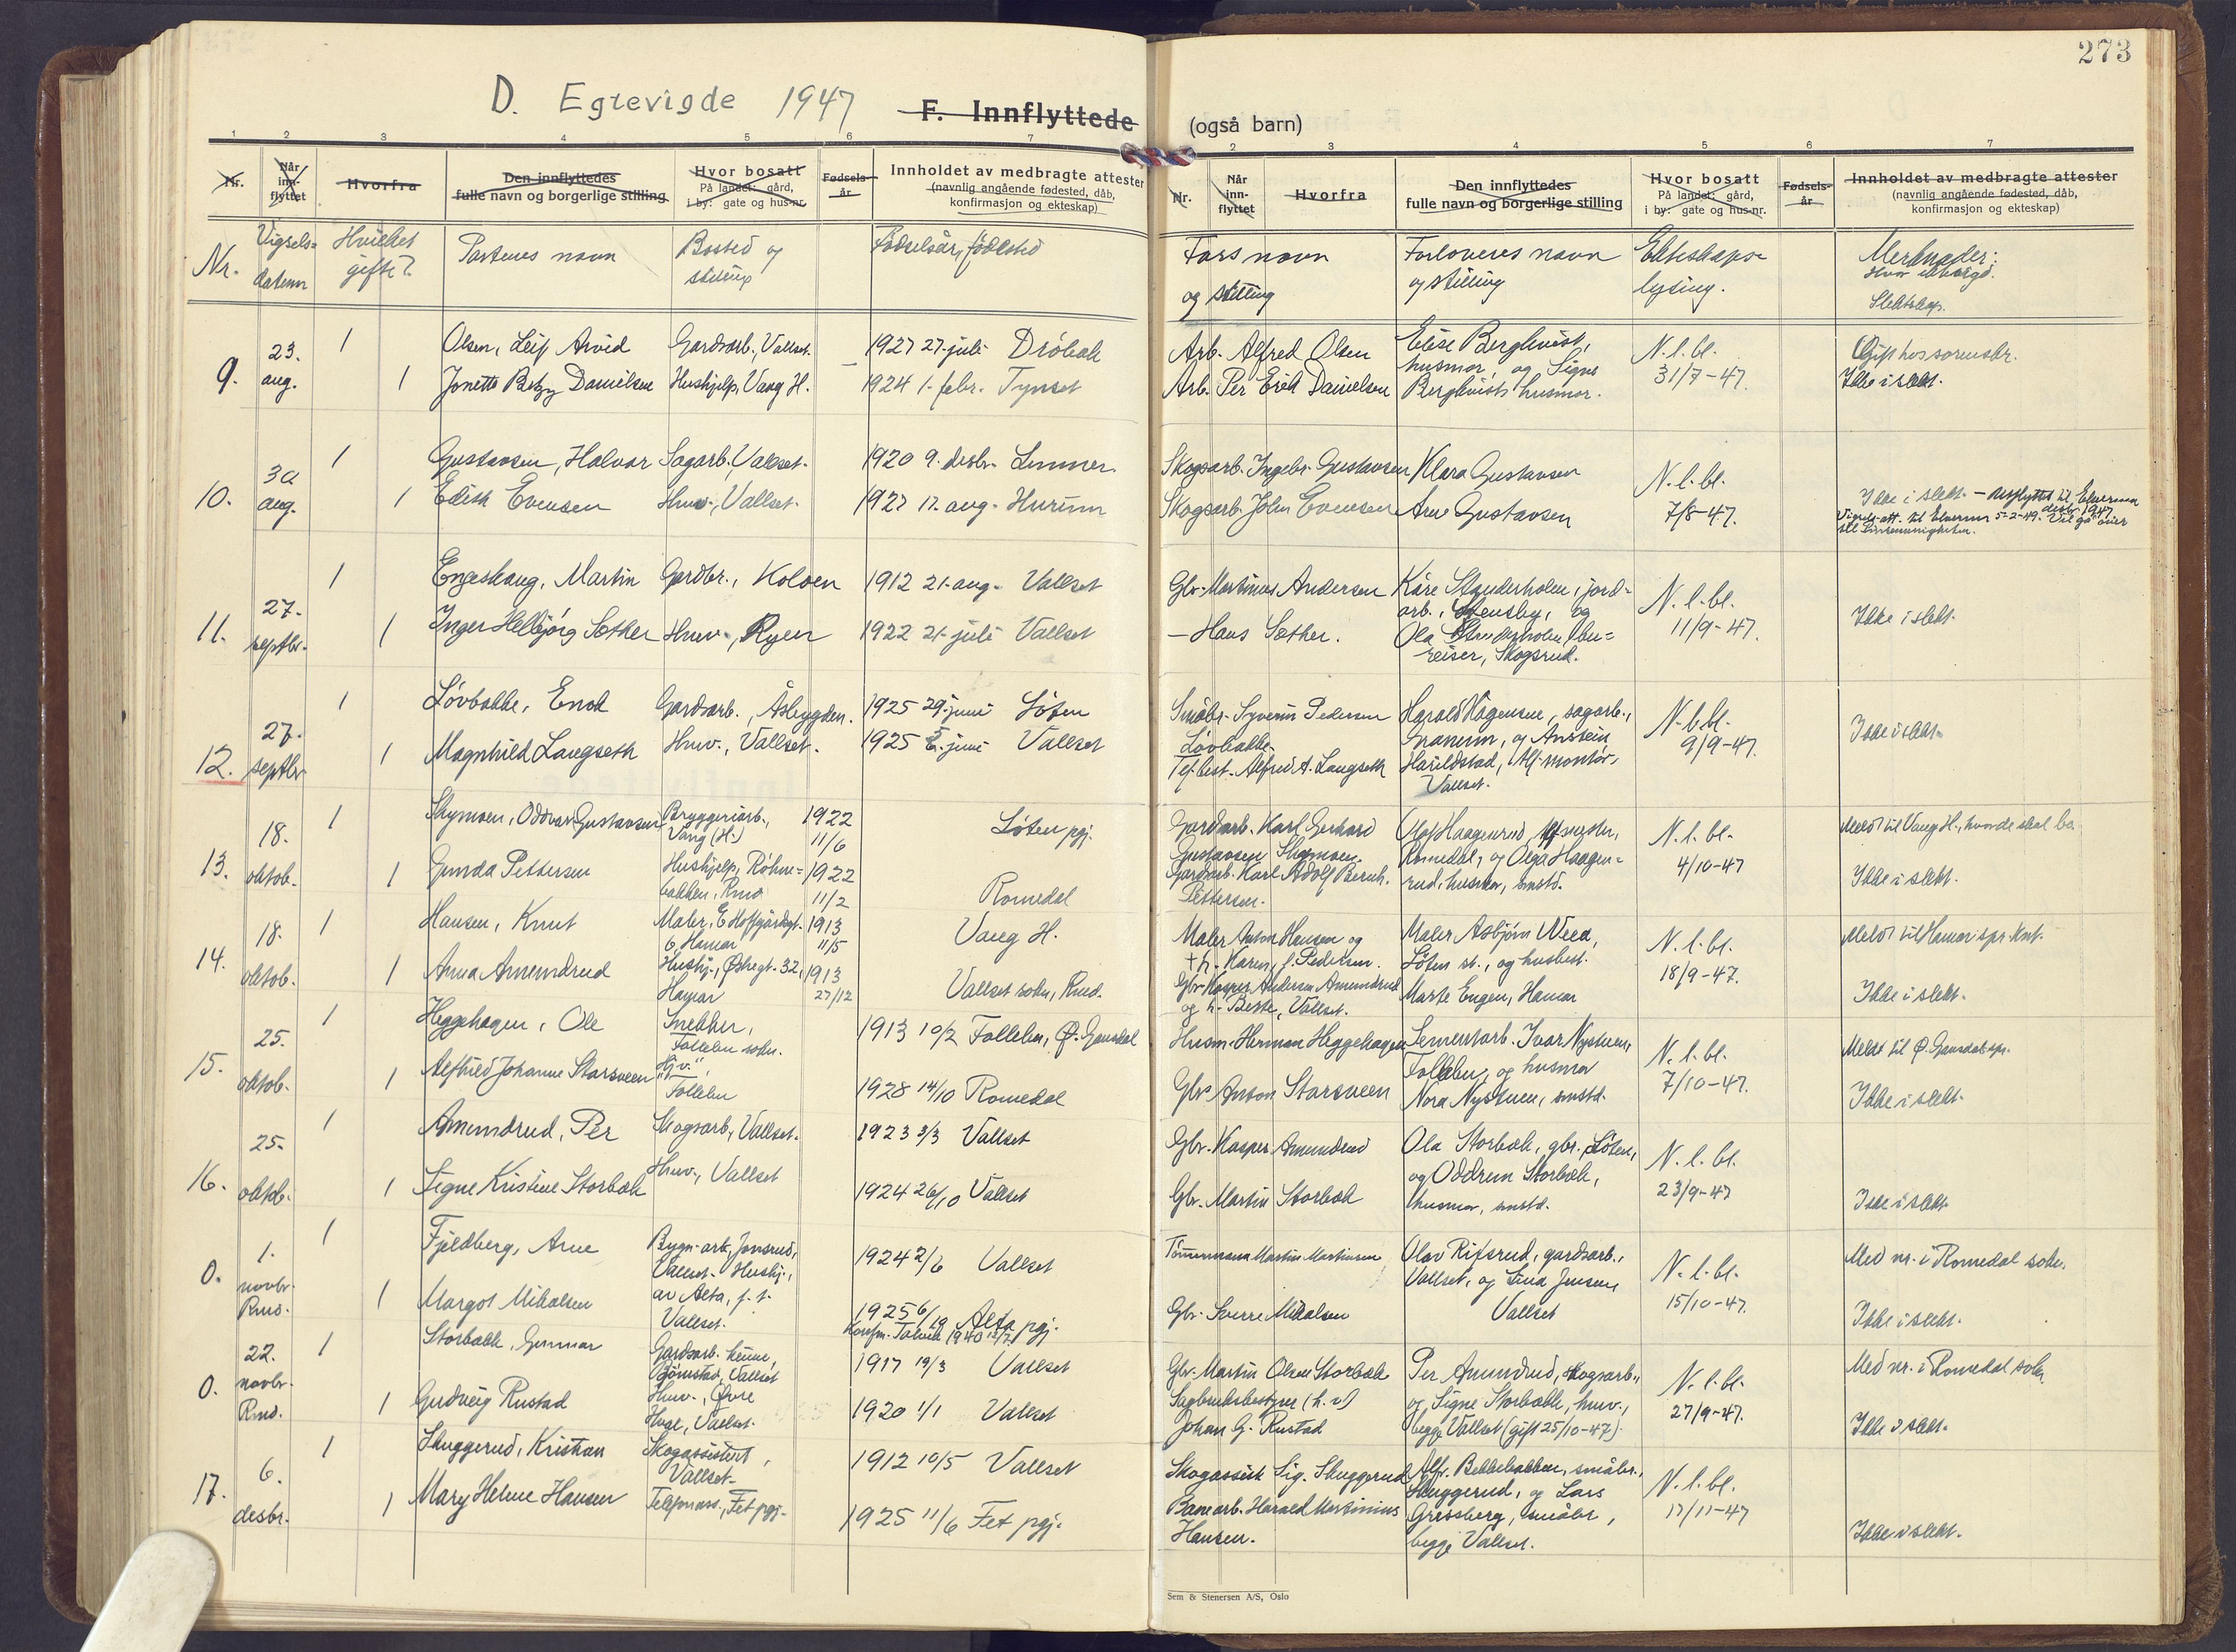 273
D. Egtevigde 1947
F. Innflyttede (også barn)
1 2 3 4 5 6 7
2 3 4 5 6 7
Nr.
Når inn-flyttet
Hvorfra
Den innflyttedes fulle navn og borgerlige stilling
Hvor bosatt
På landet: gård,
i by: gate og hus-nr.
Fødsels-år
Innholdet av medbragte attester
(navnlig angående fødested, dåb,
konfirmasjon og ekteskap)
Nr.
Når inn-flyttet
Hvorfra
Den innflyttedes fulle navn og borgerlige stilling
Hvor bosatt
På landet: gård,
i by: gate og hus-nr.
Fødsels-år
Innholdet av medbragte attester
(navnlig angående fødested, dåb,
konfirmasjon og ekteskap)
Nr. Vigsels-datum Hvilket gifte? Partenes navn Bosted og stilling Fødselsår, fødested
Fars navn og stilling Forloveres navn og stilling Ekteskaps-lysing. Merknader:
Slektskap.
9. 23. aug.
1 Olsen, Leif Arvid Gardsarb., Vallset. 1927 27. juli Drøbak
1 Jonette Betzy Danielsen Hushjelp, Vang H. 1924 1. febr. Tynset
Arb. Alfred Olsen
Arb. Per Erik Danielsen
Elise Berghvist,
husmor, og Signe
Berghvist, husmor.
N. l. bl.
31/7-47.
Gift hos sorenskr.
Ikke i slekt.
10. 30 aug.
1 Gustavsen, Halvor Sagarb., Vallset. 1920 9. desbr. Lunner.
1 Edith Evensen Huv., Vallset. 1927 17. aug. Hurum
Skogsarb. Ingebr. Gustavsen
Skogsarb. John Evensen
Klara Gustavsen
Arne Gustavsen
N. l. bl.
7/8-47.
Ikke i slekt. - Utflyttet til Elverum desbr. 1947.
Vigsels-att. til Elverum 5-2-49. Vil gå over
til
11. 27. septbr.
1 Engeshaug, Martin Gardbr., Koloen 1912 21. aug. Vallset
1 Inger Helbjørg Sæther Huv., Ryen 1922 21. juli Vallset
Gbr. Martinus Andersen
- Hans Sæther.
Kåre Standerholen, jord-
arb., Stensby, og
Ola Standerholen, bu-
reiser, Skogsrud.
N. l. bl.
11/9-47.
Ikke i slekt.
12. 27. septbr.
1 Løvbakke, Enok Gardsarb., Åsbygden. 1925 29. juni Løten
1 Magnhild Langseth Huv., Vallset. 1925 5. juni Vallset
Småbr. Syverin Pedersen
Løvbakke.
Tlf. best. Alfred A. Langseth
Harald Hagensen, sagarb.,
Granerum, og Anstein
Harildstad, tlf-montør,
Vallset.
N. l. bl.
9/9-47.
Ikke i slekt.
13. 18. oktob.
1 Skymoen, Oddvar Gustavsen Bryggeriarb., Vang (H.) 1922 11/6 Løten pgj.
1 Gunda Pettersen Hushjelp, Røhne-bakken, Rmd 1922 11/2 Romedal
Gardarb. Karl Gerhard
Gustavsen Skymoen.
Gardarb. Karl Adolf Bernh.
Pettersen.
Olaf Haagenrud, tlf mester,
Romedal, og Olga Haagen-
rud, husmor, smstd.
N. l. bl.
4/10-47
Meldt til Vang H., hvor de skal bo
Ikke i slekt.
14. 18. oktob.
1 Hansen, Knut Maler, E. Hoffgårdsgt. 6, Hamar 1913 11/5 Vang H.
1 Anna Amundrud Hushj., Østregt. 32, Hamar 1913 27/12 Vallset sokn, Rmd.
Maler Anton Hansen og
† h. Karen, f. Pedersen.
Gbr. Kasper Andersen Amundrud
og h. Berte, Vallset.
Maler Asbjørn Weea,
Løten st., og husbest.
Marte Engen, Hamar
N. l. bl.
18/9-47.
Meldt til Hamar spr. knt.
Ikke i slekt.
15. 25. oktob.
1 Heggehagen, Ole Snekker, Follebu sokn. 1913 10/2 Follebu, Ø. Gausdal
1 Alfhild Johanne Storsveen Hjv., Follebu 1928 14/10 Romedal
Husm. Herman Heggehagen
Gbr. Anton Storsveen
Sementarb. Ivar Nystuen,
Follebu, og husmor
Nora Nystuen, smstd.
N. l. bl.
7/10-47.
Meldt til Ø. Gausdal spr.
Ikke i slekt.
16. 25. oktob.
1 Amundrud, Per Skogsarb., Vallset. 1923 3/3 Vallset
1 Signe Kristine Storbæk Huv., Vallset 1924 26/10 Vallset
Gbr. Kasper Amundrud
Gbr. Martin Storbæk
Ola Storbæk, gbr. Løten,
og Oddrun Storbæk,
husmor, smstd.
N. l. bl.
23/9-47
Ikke i slekt.
0. 1. novbr. Rmd.
1 Fjeldberg, Arne Bygn-arb., Jonsrud, Vallset. 1924 2/6 Vallset
1 Margot Mikalsen Hushj., av Alta, f. t. Vallset. 1925 6/12 Alta pgj.
Konfm. Talvik 1940
Tømmermann Martin Martinsen
Gbr. Sverre Mikalsen
Olav Rifsrud, gardsarb.,
Vallset, og Lina Jensen,
Vallset
N. l. bl.
15/10-47.
Med nr. i Romedal sokn.
Ikke i slekt.
0. 22. novbr. Rmd.
1 Storbækk, Gunnar Gardsarb. heime, Bjørnstad, Vallset 1917 19/3 Vallset
1 Gudveig Rustad Huv., Øvre Huse, Vallset. 1920 1/1 Vallset
Gbr. Martin Olsen Storbæk
Sagbruksbestyrer (h. v)
Johan G. Rustad
Per Amundrud, skogsarb.,
og Signe Storbækk, huv.,
begge Vallset (gift 25/10-47).
N. l. bl.
27/9-47.
Med nr. i Romedal sokn
Ikke i slekt.
17. 6. desbr.
1 Skuggerud, Kristian Skogassistent, Vallset. 1912 10/5 Vallset
1 Mary Helene Hansen Telefonass., Fet pgj. 1925 11/6 Fet pgj.
Skogassist. Sig. Skuggerud
Banearb. Harald Martinius
Hansen.
Alfr. Bekkebakken, småbr.,
Skuggerud, og Lars
Gressberg, småbr.,
begge Vallset.
N. l. bl.
17/11-47
Ikke i slekt.
Sem & Stenersen A/S, Oslo